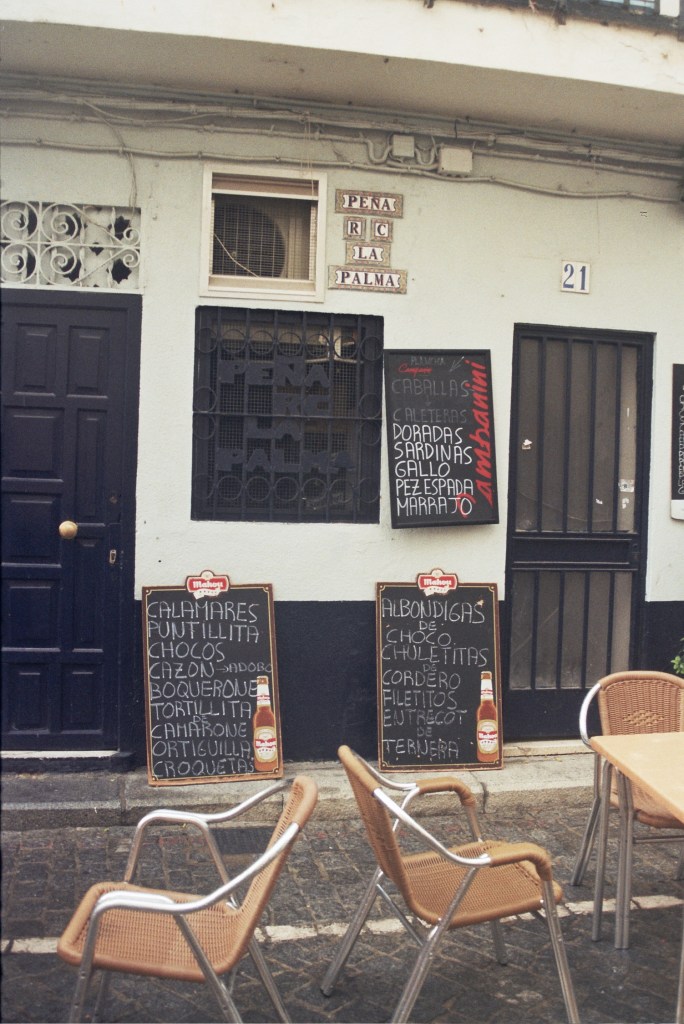 PEÑA
R C
LA
PALMA
21
PEÑA
RC
LA
PALMA
PLANCHA
CABALLAS
CALETERAS
DORADAS
SARDINAS
GALLO
PEZ ESPADA
MARRAJO
Mahou
CALAMARES
PUNTILLITA
CHOCOS
CAZON→ADOBO
BOQUERONE
TORTILLITA
DE
CAMARONE
ORTIGUILLA
CROQUETAS
Mahou
ALBONDIGAS
DE
CHOCO
CHULETITAS
DE
CORDERO
FILETITOS
ENTRECOT
DE
TERNERA